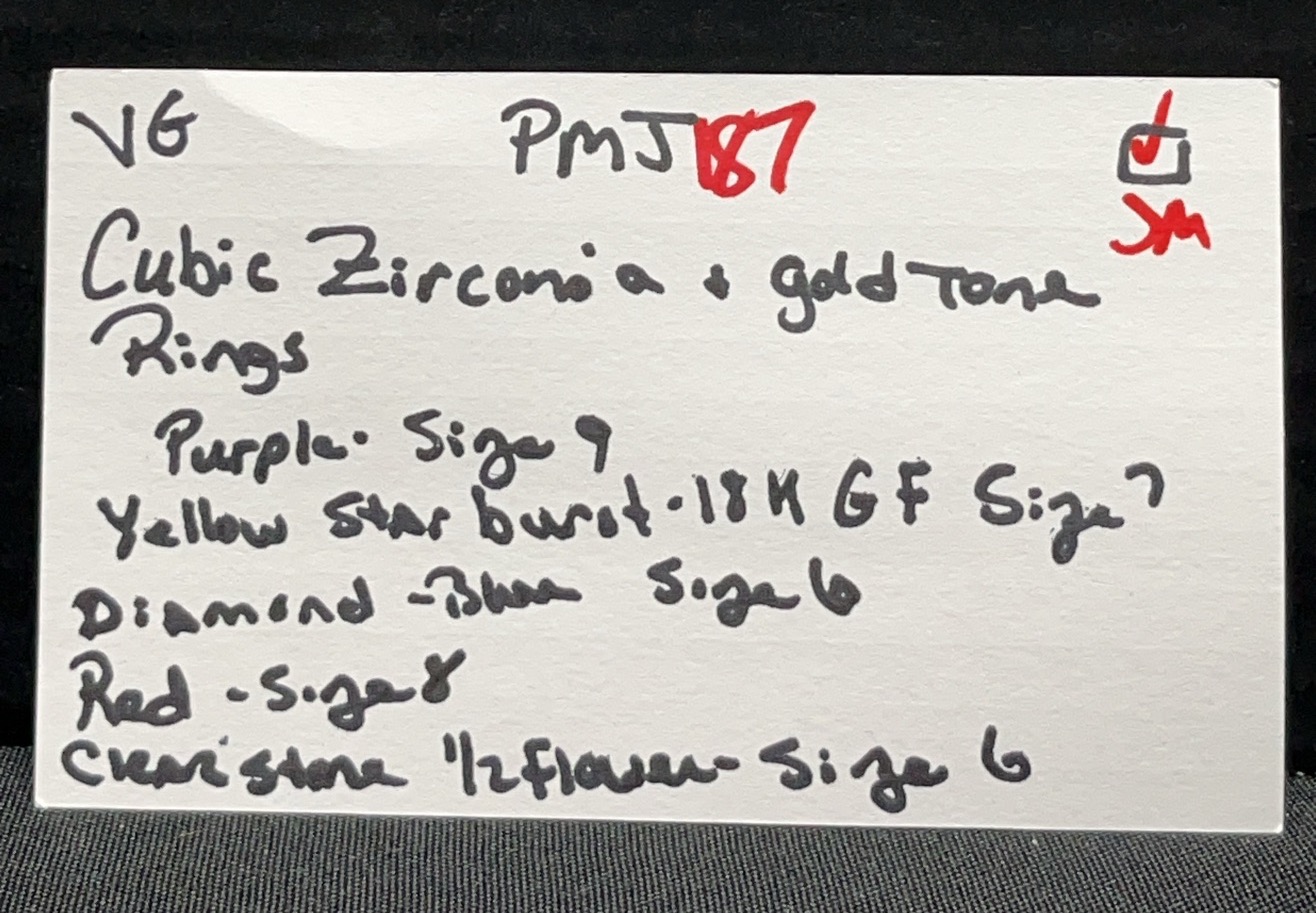 VG PMJ187
JM
Cubic Zirconia + gold Tone
Rings
Purple - Size 9
Yellow Star burst - 18K GF Size 7
Diamond - Blue Size 6
Red - Size 8
Clear stone 1/2 flower - Size 6